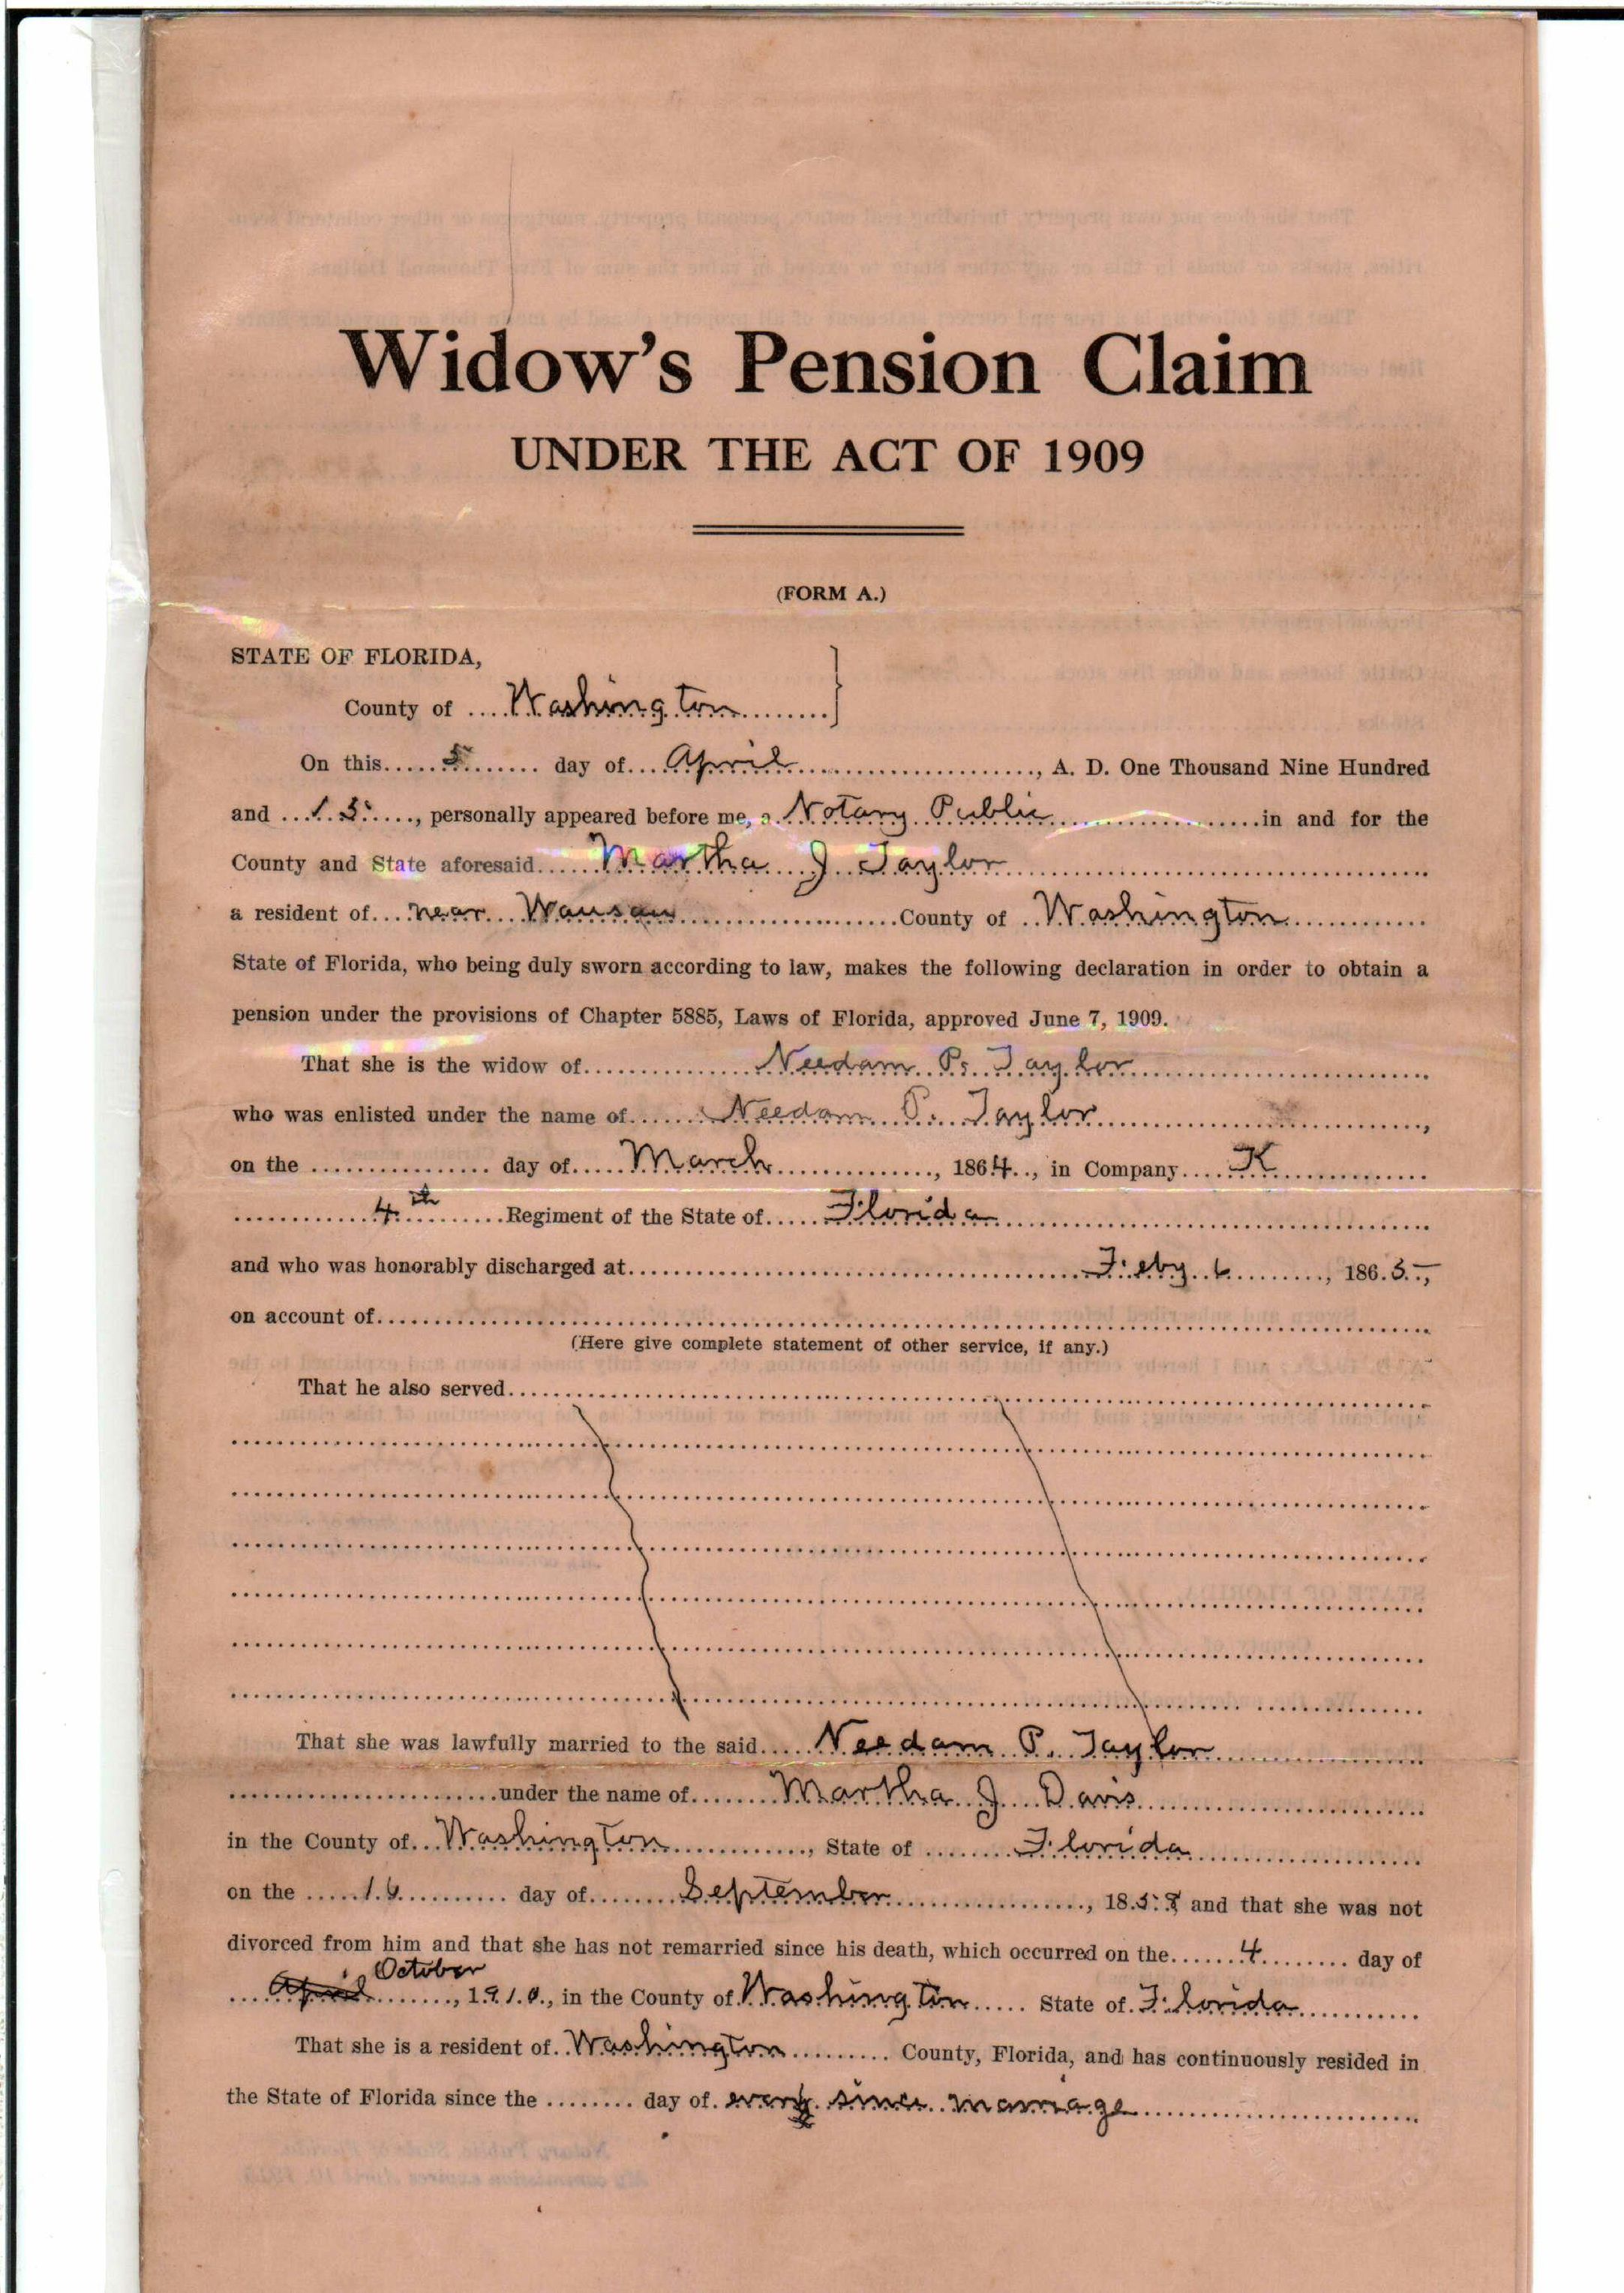 Widow's Pension Claim
UNDER THE ACT OF 1909
(FORM A.)
STATE OF FLORIDA,
County of Washington
On this 5 day of April, A. D. One Thousand Nine Hundred
and 15, personally appeared before me, a Notary Public in and for the
County and State aforesaid Martha J Taylor
a resident of near Wausau County of Washington
State of Florida, who being duly sworn according to law, makes the following declaration in order to obtain a
pension under the provisions of Chapter 5885, Laws of Florida, approved June 7, 1909.
That she is the widow of Needam P. Taylor
who was enlisted under the name of Needam P. Taylor,
on the day of March, 1864, in Company K
4th Regiment of the State of Florida
and who was honorably discharged at Feby 6, 1865,
on account of
(Here give complete statement of other service, if any.)
That he also served
That she was lawfully married to the said Needam P. Taylor
under the name of Martha J Davis
in the County of Washington, State of Florida
on the 16 day of September, 185 and that she was not
divorced from him and that she has not remarried since his death, which occurred on the 4 day of
April October, 1910, in the County of Washington State of Florida
That she is a resident of Washington County, Florida, and has continuously resided in
the State of Florida since the day of since marriage